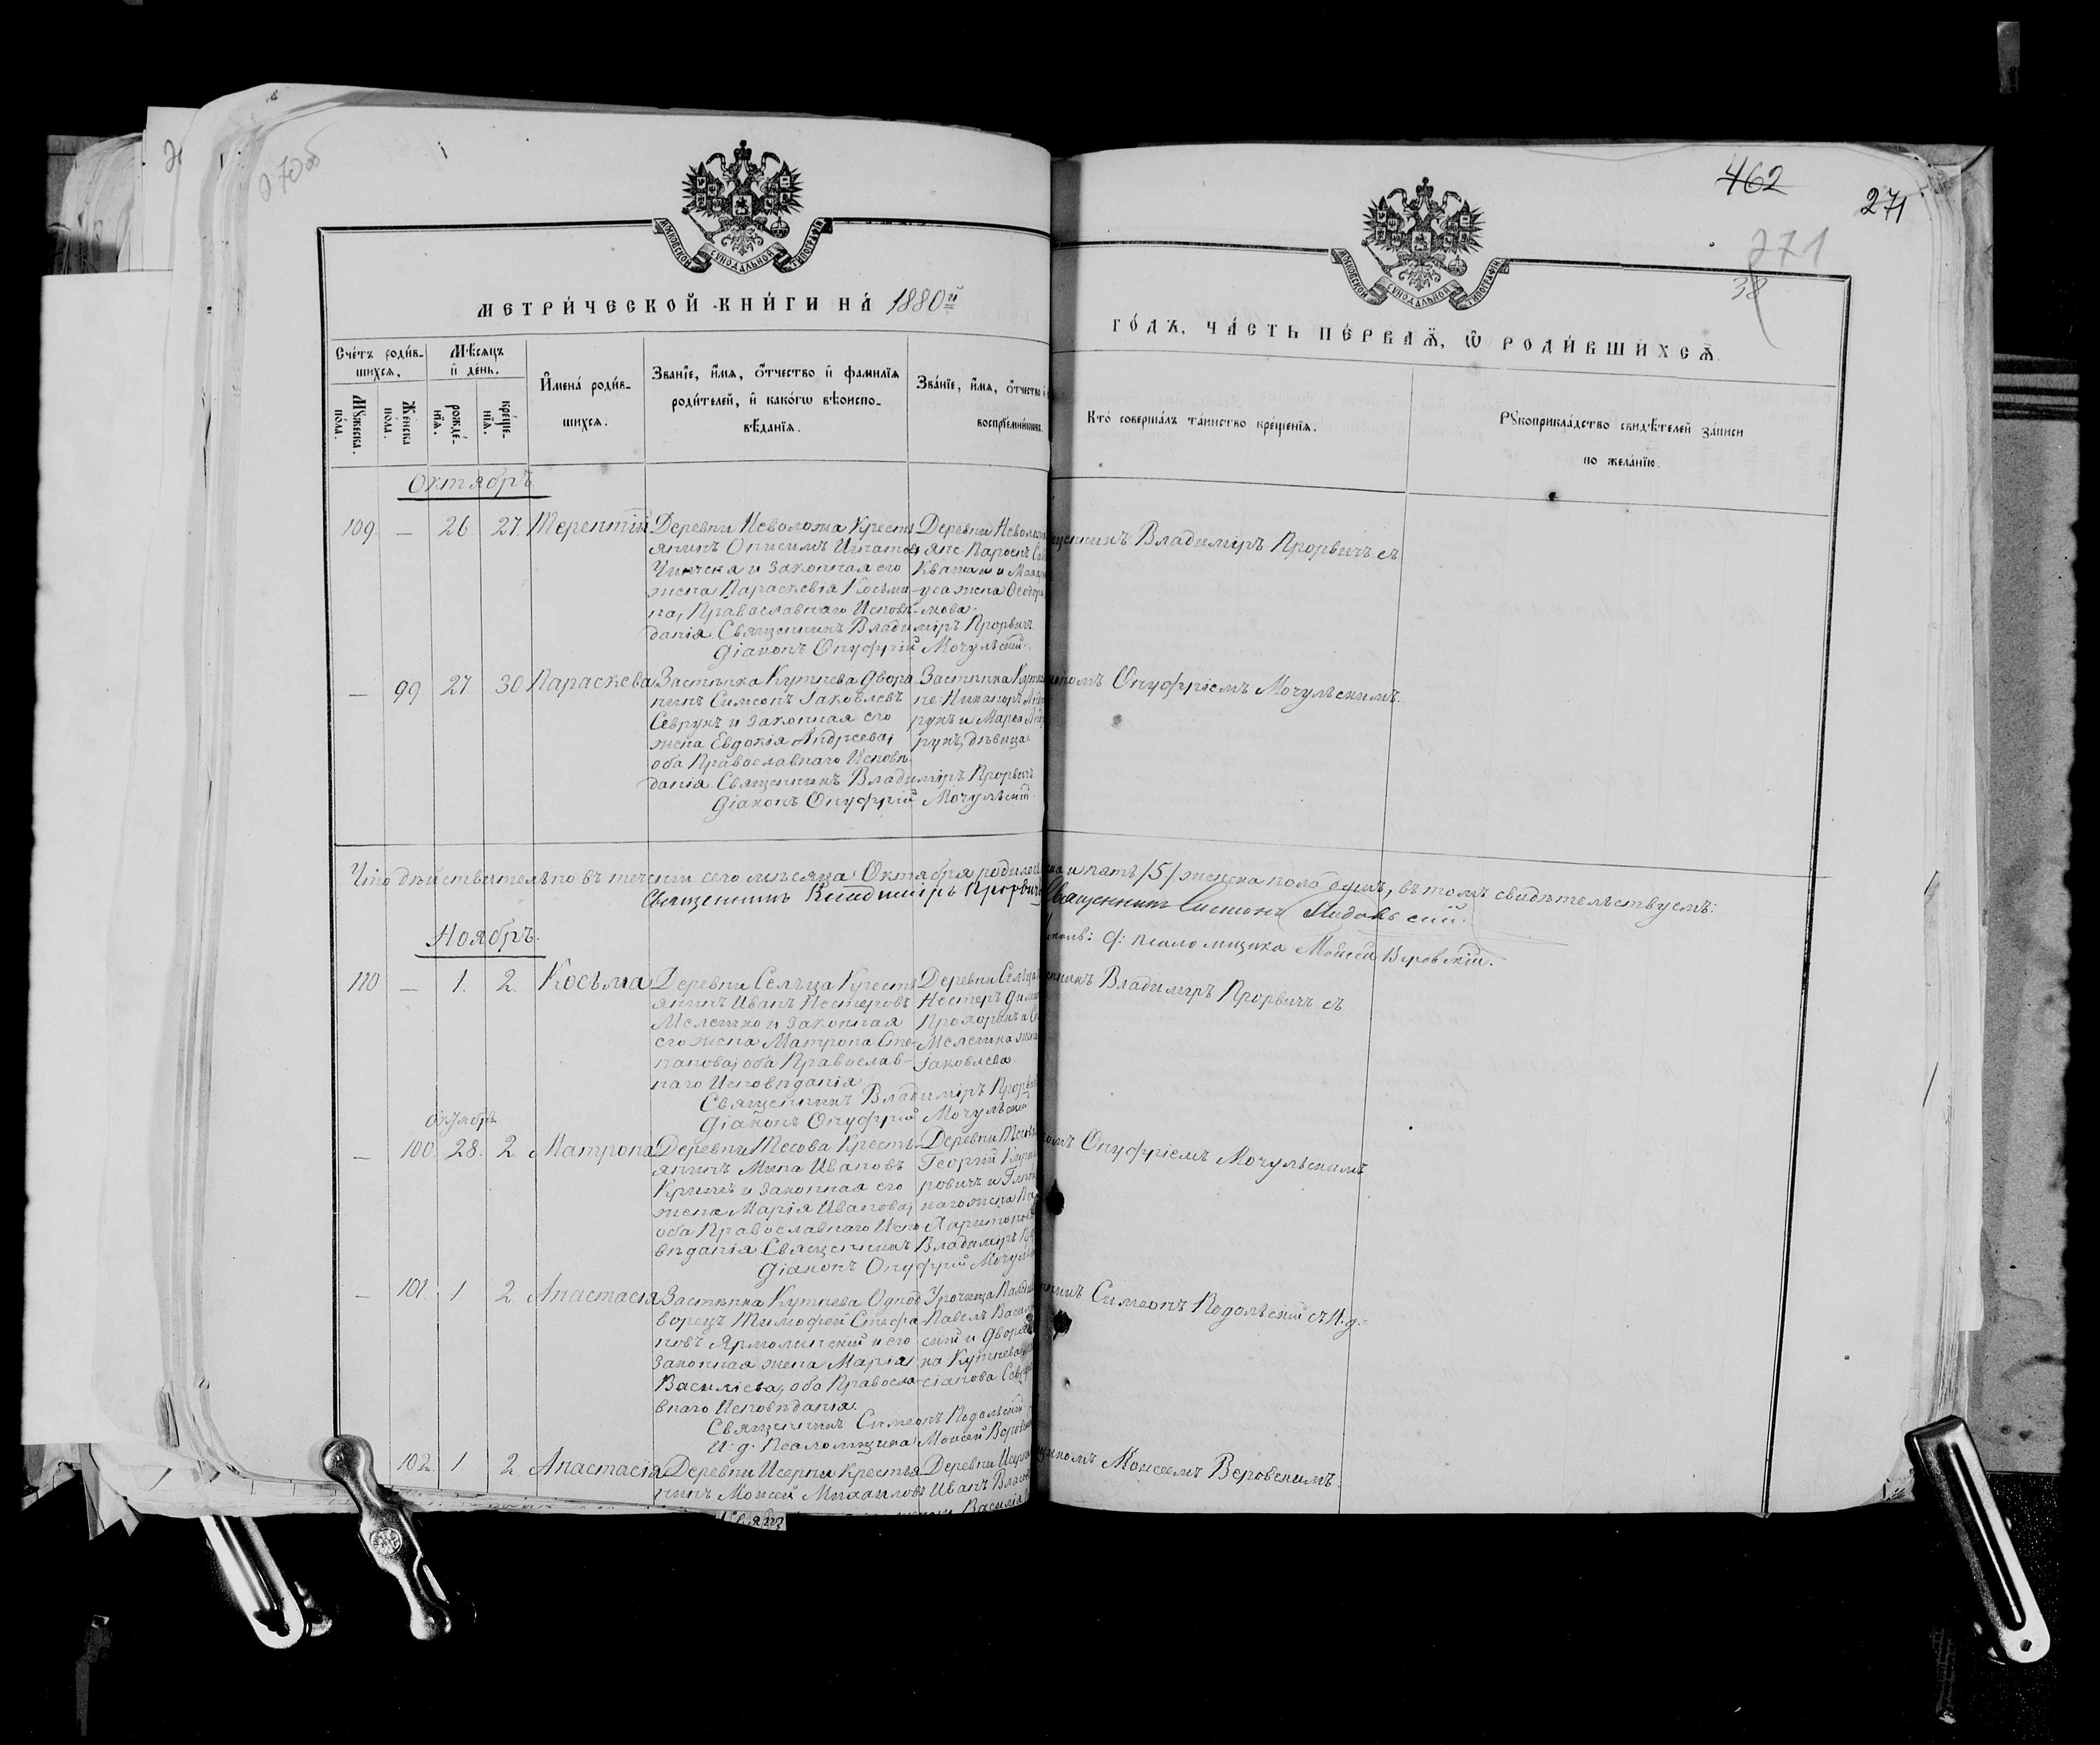 270об
462
271
271
38
МОСКОВСКОЙ СУНОДАЛЬНОЙ ТИПОГРАФІИ
МОСКОВСКОЙ СУНОДАЛЬНОЙ ТИПОГРАФІИ
МЕТРИ́ЧЕСКОЙ КНИ́ГИ НА́ 1880й
ГО́ДЪ, ЧА́СТЬ ПЕ́РВАѦ, Ѡ РОДИ́ВШИХСѦ.
Сче́тъ роди́в-
шихсѧ,
Мѣ́сѧцъ
и҆ де́нь.
Мꙋ́жеска по́ла.
Же́нска по́ла.
рожде́-
нїѧ.
креще́-
нїѧ.
И҆мена̀ роди́в-
шихсѧ.
Зва́нїе, и҆́мѧ, ѻ҆́тчество и҆ фамилїѧ
роди́телей, и҆ како́гѡ вѣ́роиспо-
вѣ́данїѧ.
Зва́нїе, и҆́мѧ, ѻ҆́тчество и҆
воспрїе́мниковъ.
Кто̀ соверша́лъ та́инство креще́нїѧ.
Рꙋкоприкла́дство свидѣ́телей за́писи
по жела́нїю.
Октябрь
109. — 26 27. Терентій
Деревни Неволожа Кресть
янинъ Онисимъ Игнатов
и законная его
жена Параскевія Косьми-
на, Православнаго Исповѣ-
данія. Священникъ Владиміръ Прорвичъ
Діаконъ Онуфрій Мочульскій.
Деревни Неволожа
уса жена Ѳеодора
мова.
щенникъ Владиміръ Прорвичъ съ
— 99. 27. 30 Параскева
Застѣнка Кутнева Двора
нинъ Симеонъ Іаковлевъ
Севрукъ и законная его
жена Евдокія Андреева,
оба Православнаго Исповѣ-
данія. Священникъ Владиміръ Прорвичъ
Діаконъ Онуфрій Мочульскій.
Застѣнка Кутн
не Никаноръ Андр
рукъ и Марѳа Анд
рукъ, дѣвица.
кономъ Онуфріемъ Мочульскимъ.
Что дѣйствительно въ теченіи сего мѣсяца Октября родилось
ска и пять /5/ женска пола душъ, въ томъ свидѣтельствуемъ:
Священникъ Владиміръ Прорвичъ
Священникъ Симеонъ Подольскій.
псаломщика Моисей Веровскій.
Ноябрь.
110. — 1. 2. Косьма
Деревни Сельца Кресть
янинъ Иванъ Нестеровъ
Мелешко и законная
его жена Матрона Сте-
панова, оба Православ-
наго Исповѣданія
Священникъ Владиміръ Прорвич
Діаконъ Онуфрій Мочульскій
Деревни Сельца
Нестеръ Дими
Прохорика
Мелешка жен
Іаковлева.
енникъ Владиміръ Прорвичъ съ
Октябрь
— 100. 28. 2. Матрона
Деревни Тесова Кресть-
янинъ Мина Ивановъ
Кринъ и законная его
жена Марія Иванова,
оба Православнаго Испо
вѣданія Священникъ Владиміръ Пр
Діаконъ Онуфрій Мочуль
Деревни Тесов
Георгій
ровичъ и
наго жена Па
Харитонов
омъ Онуфріемъ Мочульскимъ
— 101. 1 2. Анастасія
Застѣнка Кутнева Однод
ворецъ Тимофей Стефа
новъ Ярмолинскій и его
законная жена Марія
Василіева, оба Правосла-
внаго Исповѣданія.
Священникъ Симеонъ Подольскій
И. д. Псаломщика Моисей Веровс
Урочища
Павелъ Васил
скій и Дворян
ка Кутнева
сіанова Севр
нникъ Симеонъ Подольскій съ И. д.
102. 1 2. Анастасія
Деревни Исерни Крестья
нинъ Моисей Михаиловъ
Деревни Исерн
Иванъ Власо
Василі
щикомъ Моисеемъ Веровскимъ.